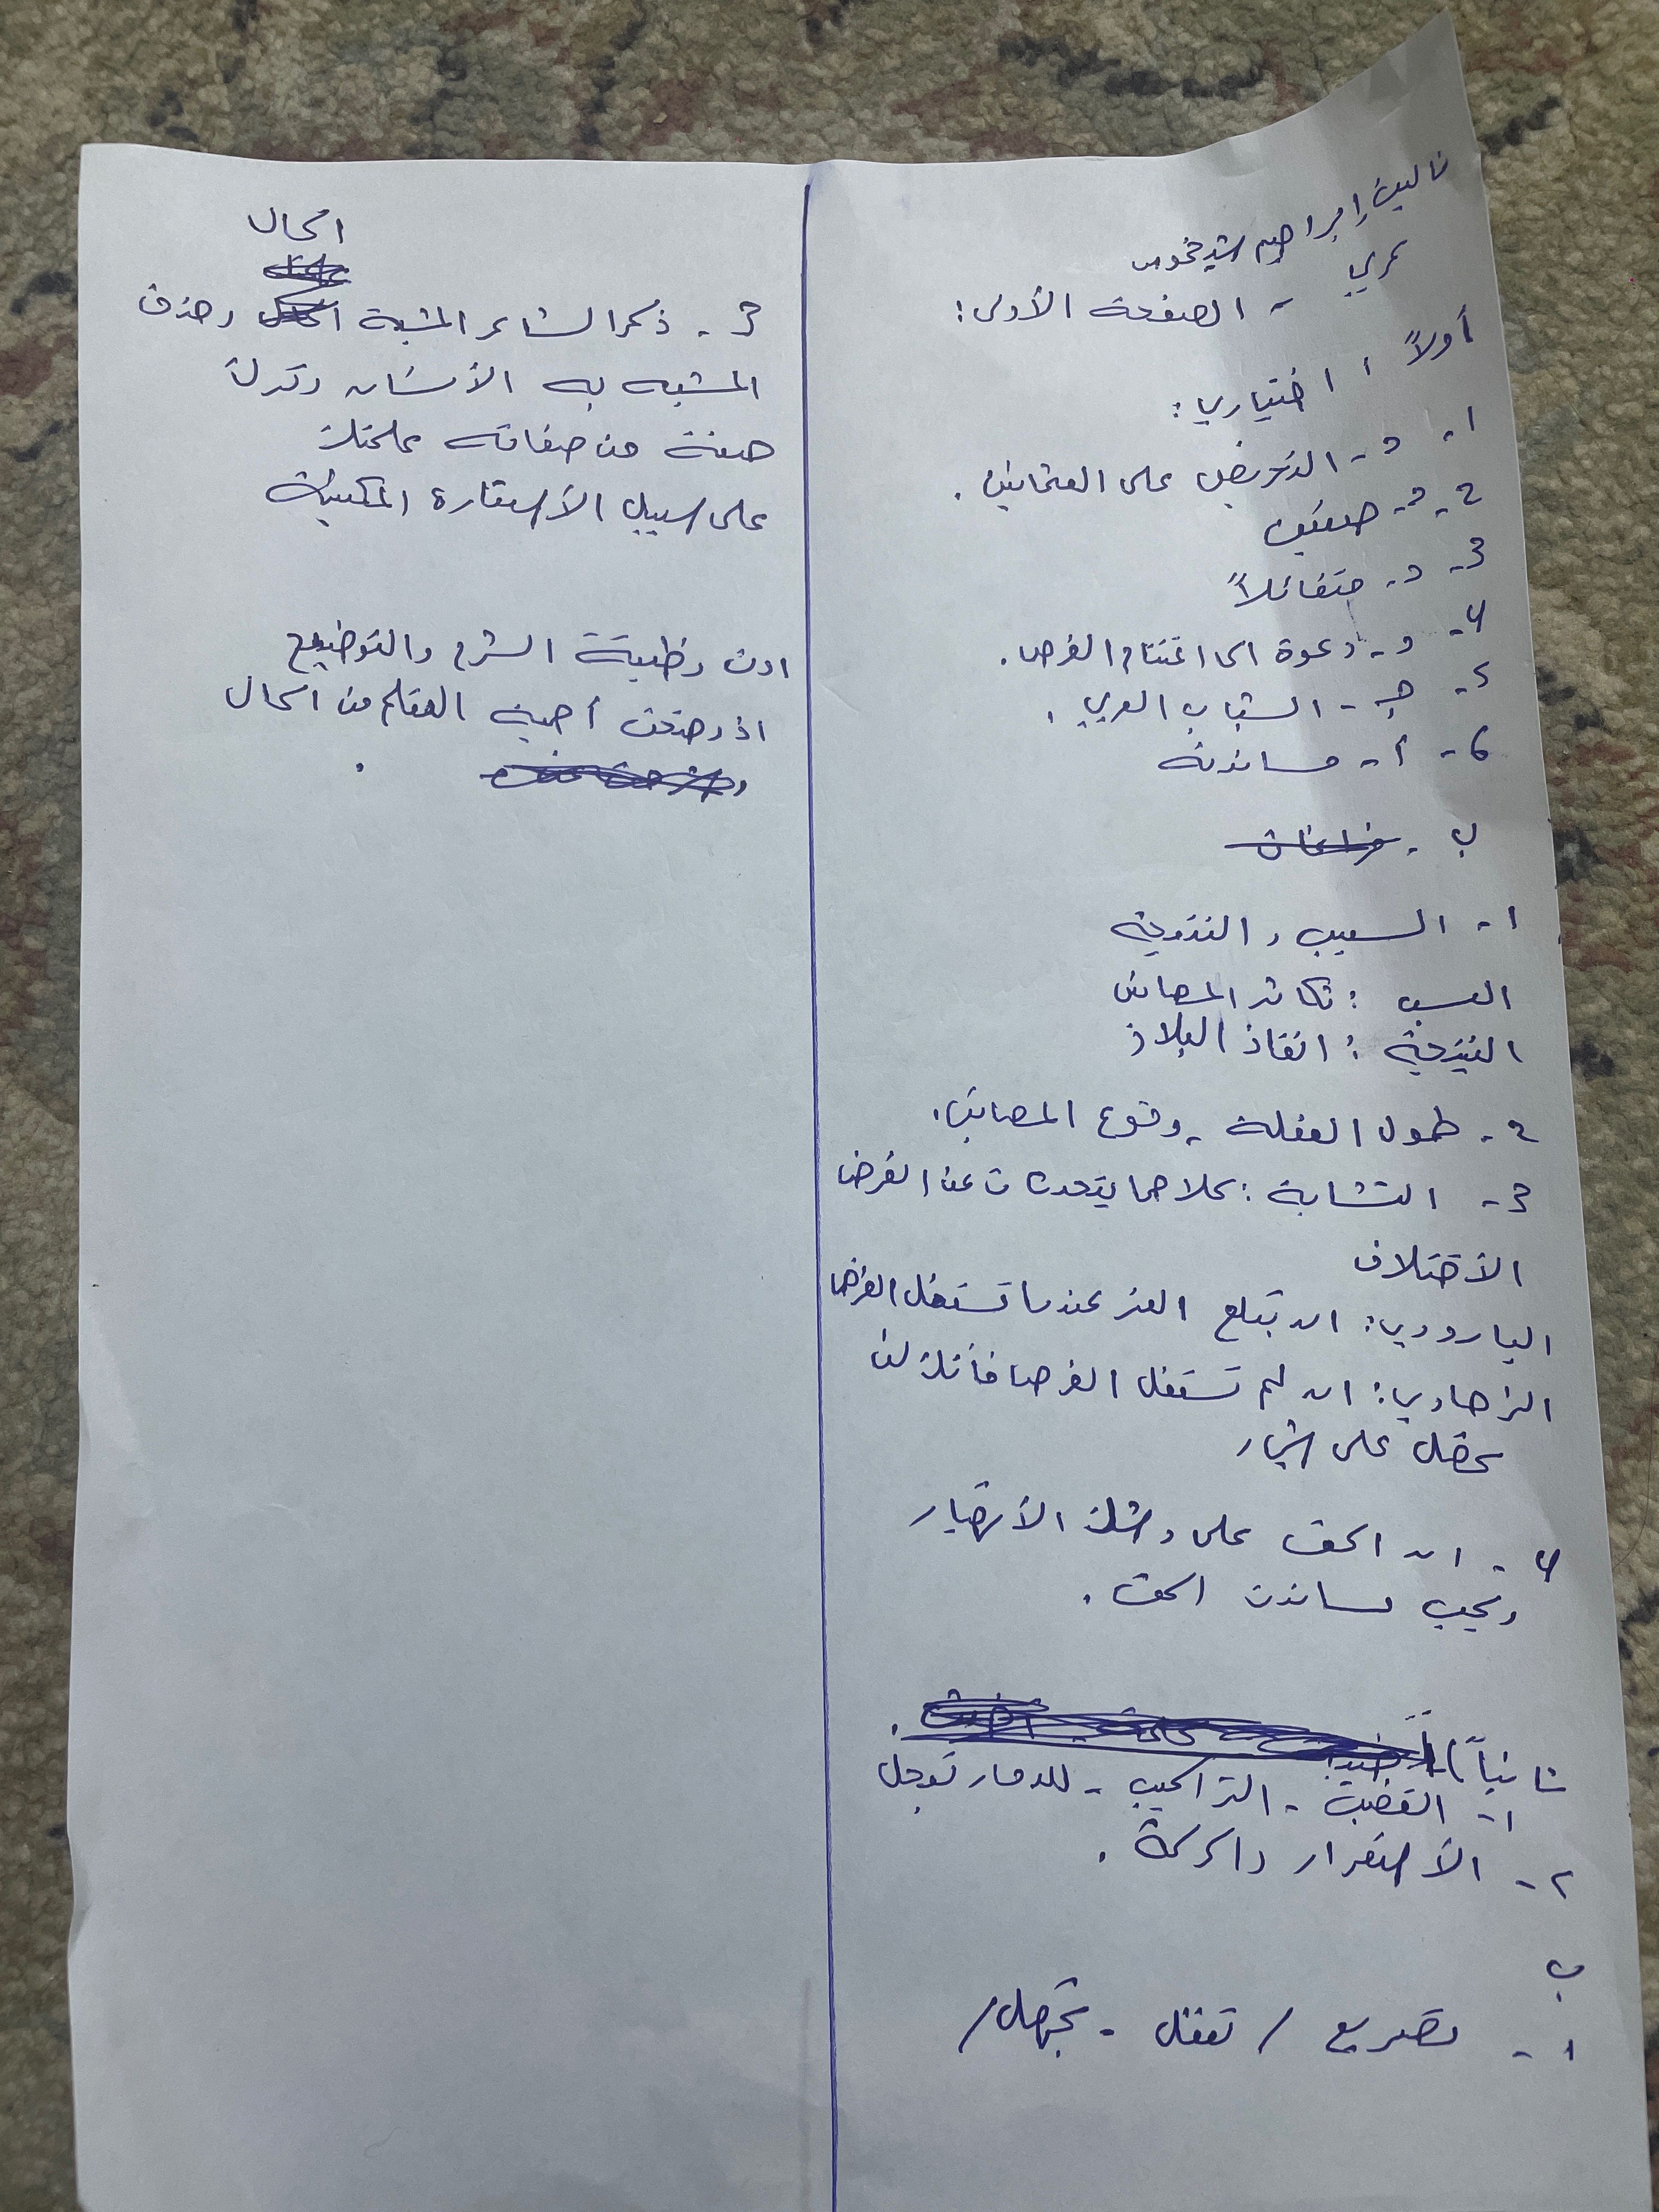 إبراهيم
عربي - الصفحة الأولى:
أولاً ا اختياري:
1- د- التحريض على العثمانيين.
2- د-
3- د- متفائلاً
4- د- دعوة الى اغتنام الفرص.
5- جـ - الشباب العربي.
6- أ- مساندته
ب - فراغات
1- السبب و النتيجة
السبب : تكاثر المصائب
النتيجة : انقاذ البلاد
2- طول الغفلة - وقوع المصائب.
3- التشابة : كلاهما يتحدثان عن الفرص
الأختلاف
البارودي: ان تبلغ العز عندما تستغل الفرص
الزهاوي: ان لم تستغل الفرص فأنك لن
تحصل على
4- ان الحق على وشك الأنهيار
ويجب مساندت الحق.
ثانياً)
1- القضية - التراكيب - للدمار تعجل
2- الأستقرار والحركة.
ب
1- تصريع / تعقل - تجهل /
الحال
3- ذكر الشاعر المشبة وحذف
المشبه به الأنسان وترك
صفة من صفاته
على سبيل الأستعارة المكنية
ادت وظيفة الشرح والتوضيح
اذ وضحت أهمية من الحال